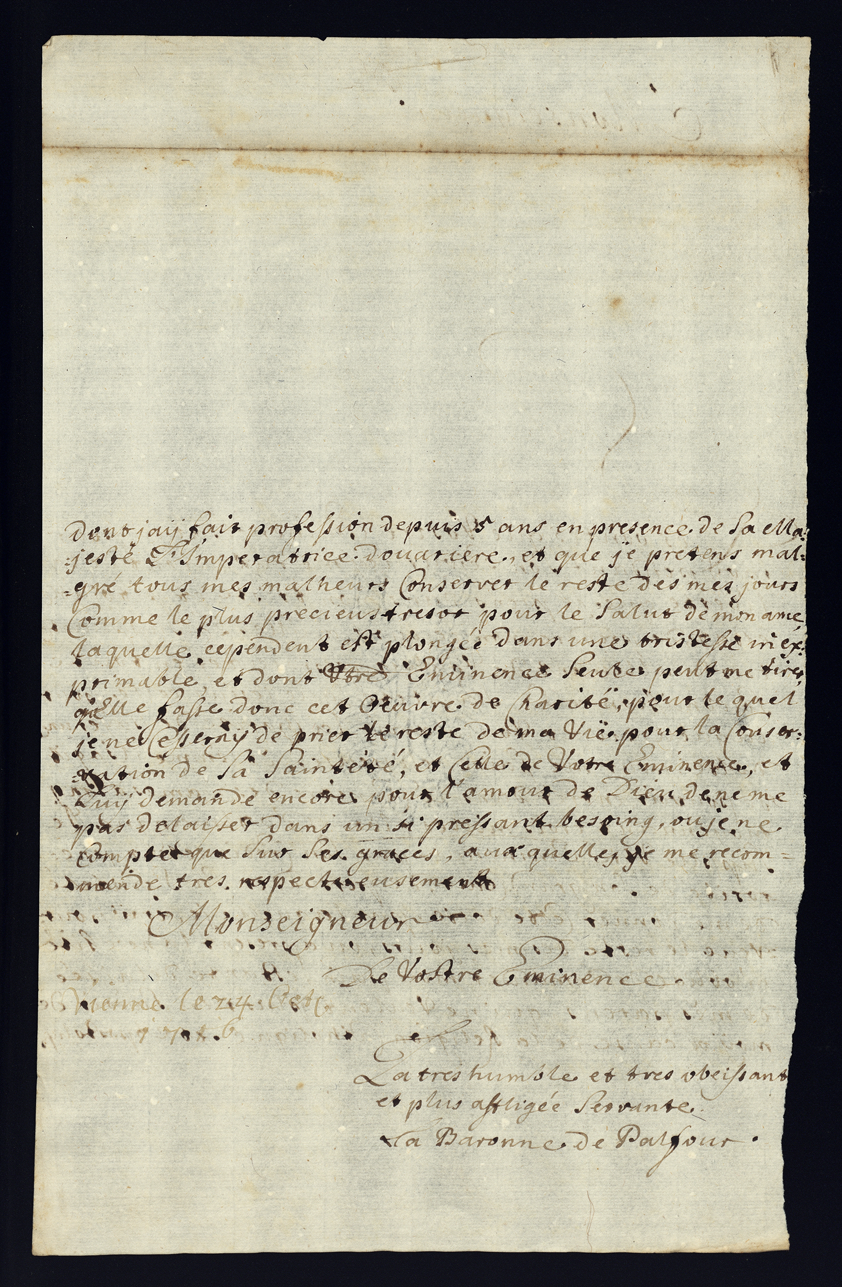 dont jaij fait profession depuis 5 ans en presence de Sa Ma=
=jesté L'Imperatrice douariere, et que je pretens mal=
=gré tous mes malheurs Conserver le reste des mes jours
Comme le plus precieus tresor pour le Salut de mon ame,
laquelle cependent est plongée dans une tristesse inex=
primable, et dont Vtre Eminence Seule peut me tirer,
qu'Elle fasse donc cet Oeuvre de Charité, pour le quel
je ne Cesseraij de prier le reste de ma Vie, pour la Conser=
=vation de Sa Sainteté, et Celle de Votre Eminence, et
Luij demande encore pour l'amour de Dieu de ne me
pas delaisser dans un si pressant besoing, ou je ne
compte que Sur Ses graces, aux quelles je me recom=
=mende tres respectueusement
Monseigneur
De Vostre Eminence
Vienne le 24
La tres humble et tres obeissant
et plus affligée Servante
La Baronne de Balfour.